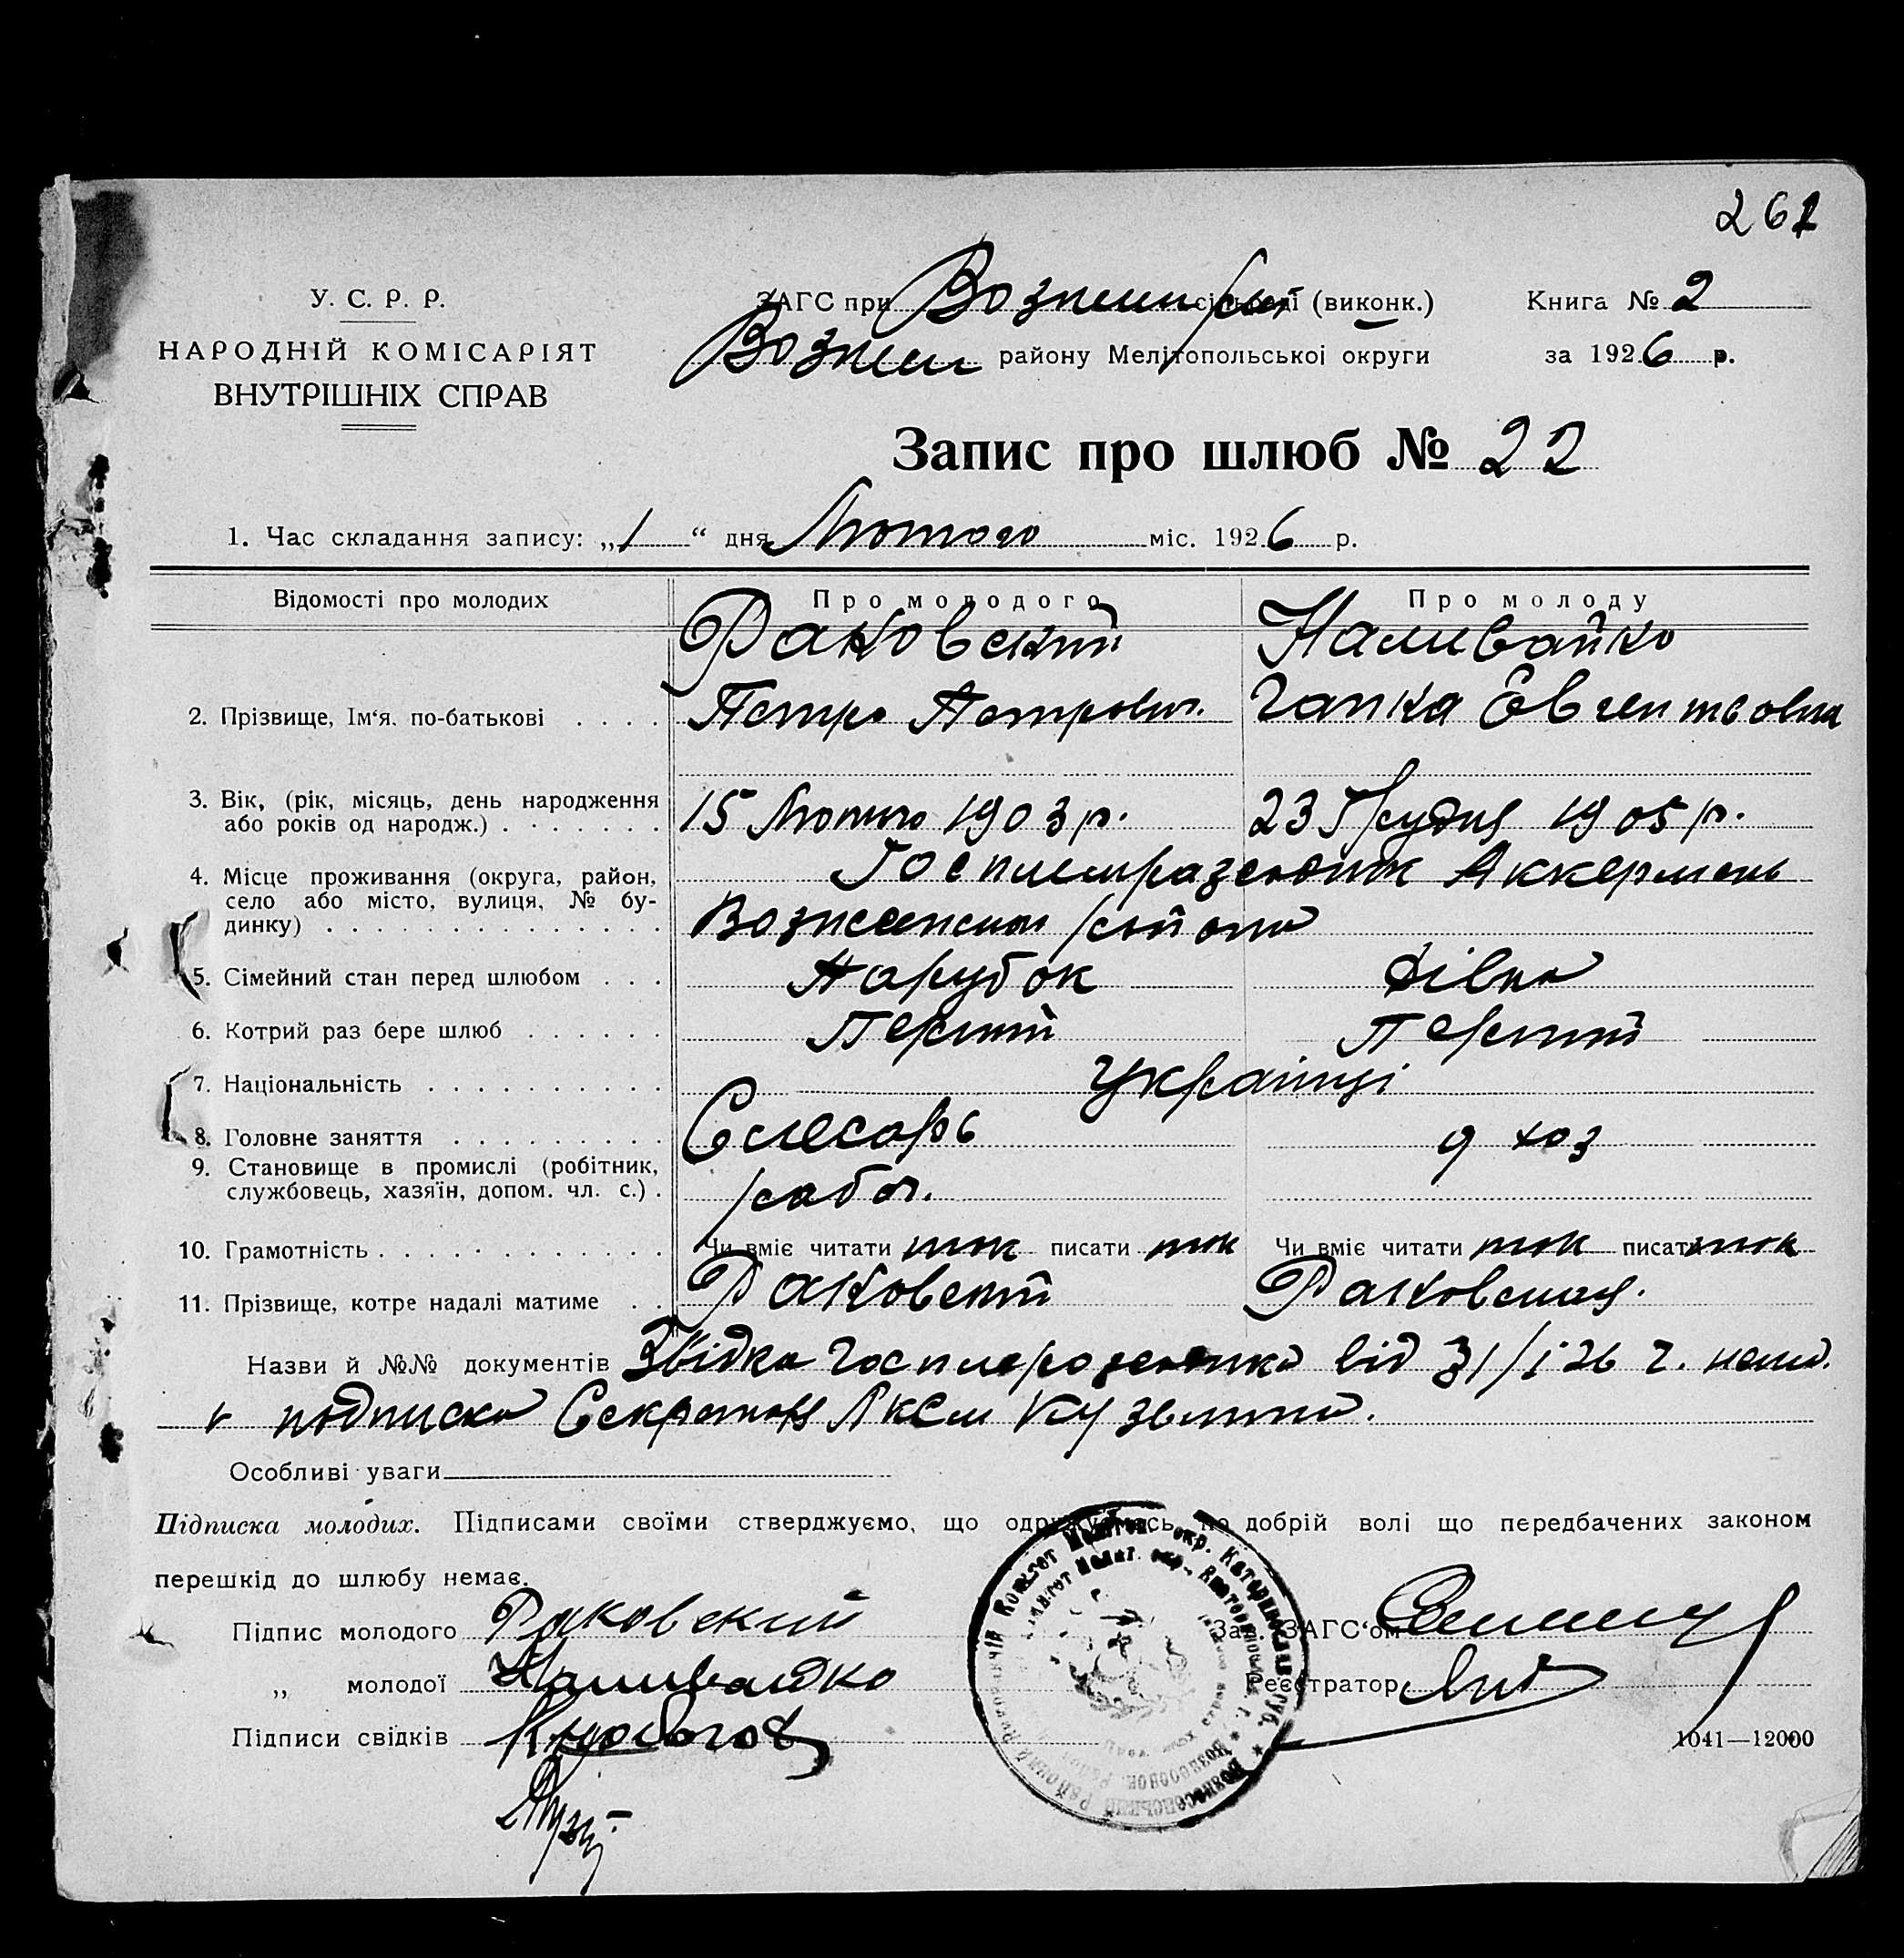 261
У. С. Р. Р.
НАРОДНІЙ КОМІСАРІЯТ
ВНУТРІШНІХ СПРАВ
ЗАГС при сільраді (виконк.) Книга № 2
Вознем району Мелітопольської округи за 1926 р.
Запис про шлюб № 22
1. Час складання запису: „1“ дня Лютого міс. 1926 р.
Відомості про молодих Про молодого Про молоду
Раковский Наливайко
2. Прізвище, Ім‘я, по-батькові . . . . Петро Петрович Гапка
3. Вік, (рік, місяць, день народження
або років од народж.) . . . . . . . 15 Лютого 1903 р. 23 Грудня 1905 р.
4. Місце проживання (округа, район,
село або місто, вулиця, № бу-
динку) . . . . . . . . . . . . . .
Аккермень
району
5. Сімейний стан перед шлюбом . . . Парубок Дівка
6. Котрий раз бере шлюб . . . . . . Перший Перший
7. Національність . . . . . . . . . . Українці
8. Головне заняття . . . . . . . . . Слесарь д хоз
9. Становище в промислі (робітник,
службовець, хазяїн, допом. чл. с.) . рабоч.
10. Грамотність . . . . . . . . . . . . Чи вміє читати так писати так Чи вміє читати так писати так
11. Прізвище, котре надалі матиме . . Раковский Раковская.
Назви й №№ документів Звідка від 31/I 26 г.
и подписка Секретаря ЛКСМ
Особливі уваги
Підписка молодих. Підписами своїми стверджуємо, що одружуємось по добрій волі що передбачених законом
перешкід до шлюбу немає.
Підпис молодого Раковский Зав. ЗАГС‘ом
„ молодої Наливайко Реєстратор
Підписи свідків
1041—12000